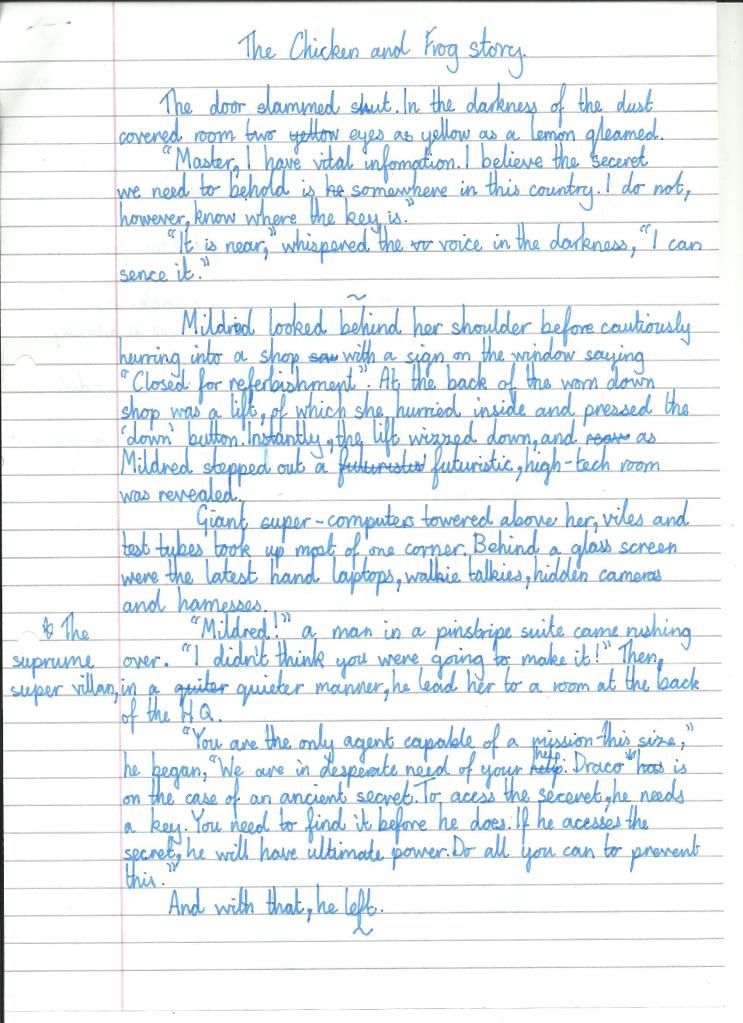 The Chicken and Frog story.
The door slammed shut. In the darkness of the dust
covered room two yellow eyes as yellow as a lemon gleamed.
"Master, I have vital infomation. I believe the seceret
we need to behold is he somewhere in this country. I do not,
however, know where the key is."
"It is near," whispered the vo voice in the darkness, "I can
sence it."
~
Mildred looked behind her shoulder before cautiously
hurring into a shop saw with a sign on the window saying
"Closed for referbishment". At the back of the worn down
shop was a lift, of which she hurried inside and pressed the
'down' button. Instantly, the lift wizzed down, and as
Mildred stepped out a futuristic, high-tech room
was revealed.
Giant super-computers towered above her, viles and
test tubes took up most of one corner. Behind a glass screen
were the latest hand laptops, walkie talkies, hidden cameras
and harnesses.
"Mildred!" a man in a pinstripe suite came rushing
over. "I didn't think you were going to make it!" Then,
in a quiter quieter manner, he lead her to a room at the back
of the HQ.
"You are the only agent capable of a mission this size,"
he began, "We are in desperate need of your help. help Draco* has is
* The
suprume
super villan,
on the case of an ancient secret. To acess the seceret, he needs
a key. You need to find it before he does. If he acesses the
secret, he will have ultimate power. Do all you can to prevent
this."
And with that, he left.
~